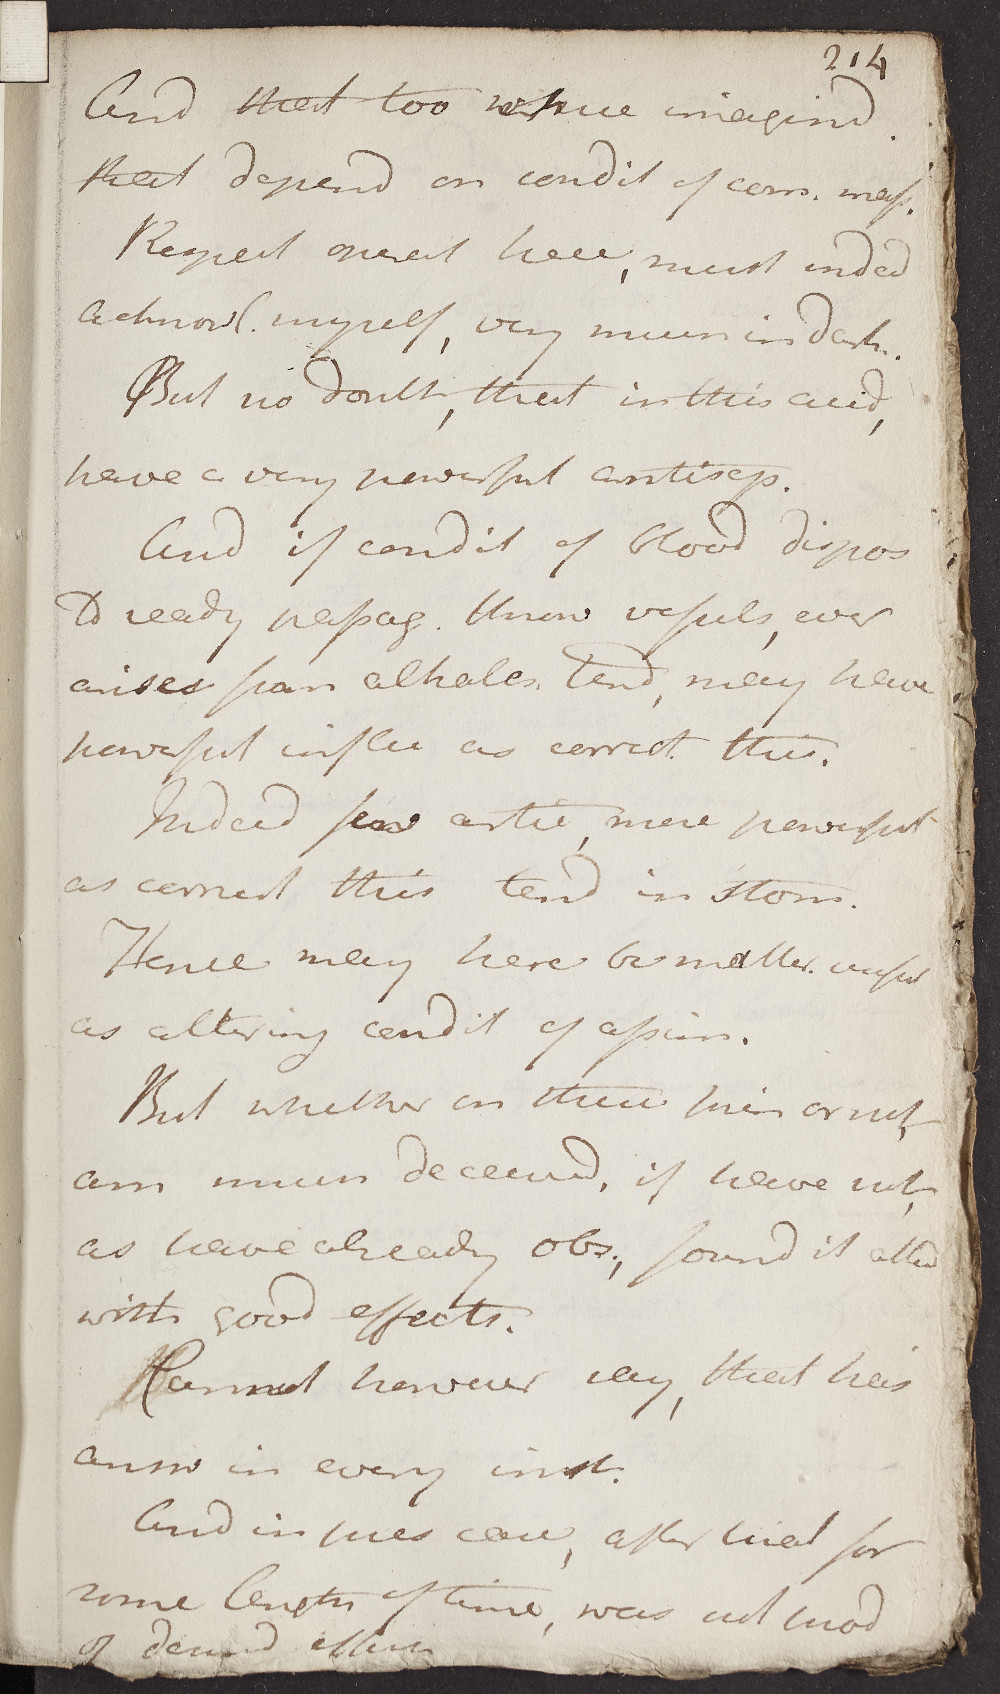 214
And that too where imagind
that depend on condit of com. mass.
Respect operat here, must inded
acknowl. myself, very much in dark.
But no doubt, that in this acid,
have a very powerful antisep.
And if condit of blood dispos
to ready passag. throw vessels, ever
arises from alkales. tend, may have
powerful influ as correct. this.
Indeed few artic, more powerful
as correct this tend in stom.
Hence may here be matter. useful
as altering condit of
But whether on these prin or not,
am much deceived, if have not,
as have already obs., found it attend
with good effects.
Cannot however say, that has
answ in every inst.
And in pres case, after trial for
some length of time, was not prod
of desired effects